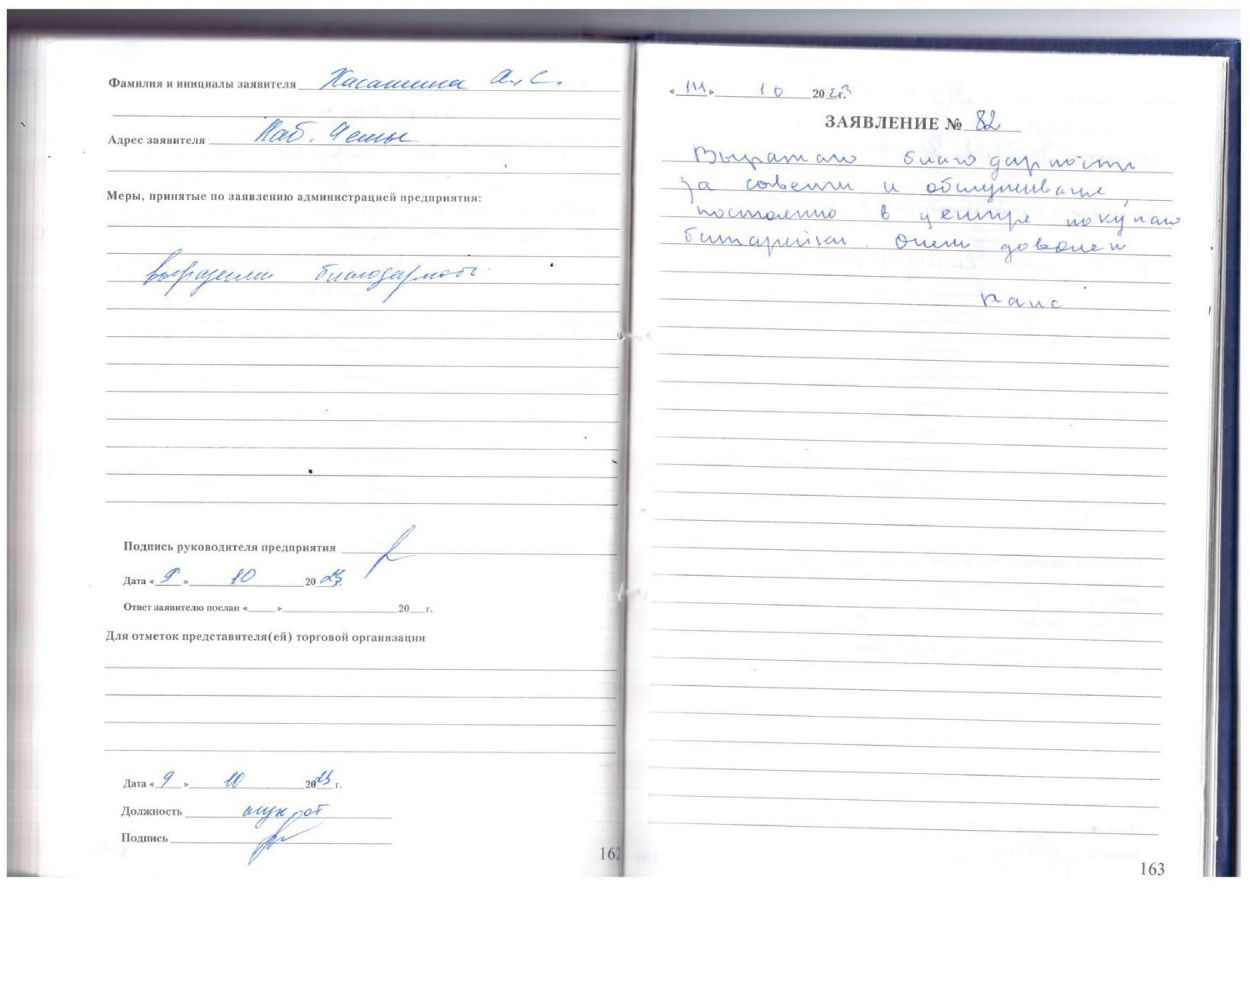 Фамилия и инициалы заявителя Хасанина А. С.
Адрес заявителя Наб. Челны
Меры, принятые по заявлению администрацией предприятия:
выразили благодарность
Подпись руководителя предприятия
Дата « 9 » 10 20 23 г.
Ответ заявителю послан « » 20 г.
Для отметок представителя(ей) торговой организации
Дата « 9 » 10 2023 г.
Должность
Подпись
162
« » 10 2023 г.
ЗАЯВЛЕНИЕ № 82
Выражаю благодарность
за советы и обслуживание,
постоянно в центре покупаю
батарейки. Очень доволен
163